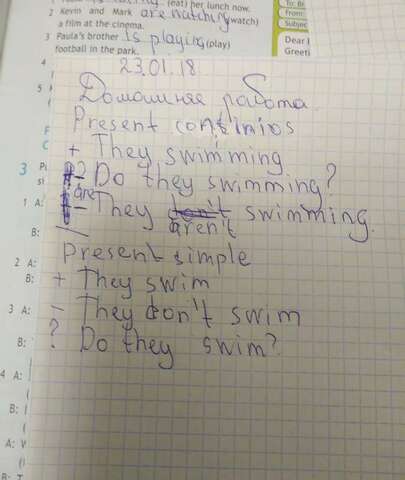 (eat) her lunch now.
2 Kevin and Mark are watching (watch)
a film at the cinema.
3 Paula's brother is playing (play)
football in the park.
To:
From:
Subjec
Dear
Greeti
4
5
3
1 A:
B:
2 A:
B:
3 A:
B:
4 A:
B:
A:
23.01.18.
Домашняя работа.
Present continios
+ They swimming
? Do they swimming?
are
- They aren't swimming.
Present simple
+ They swim
- They don't swim
? Do they swim?